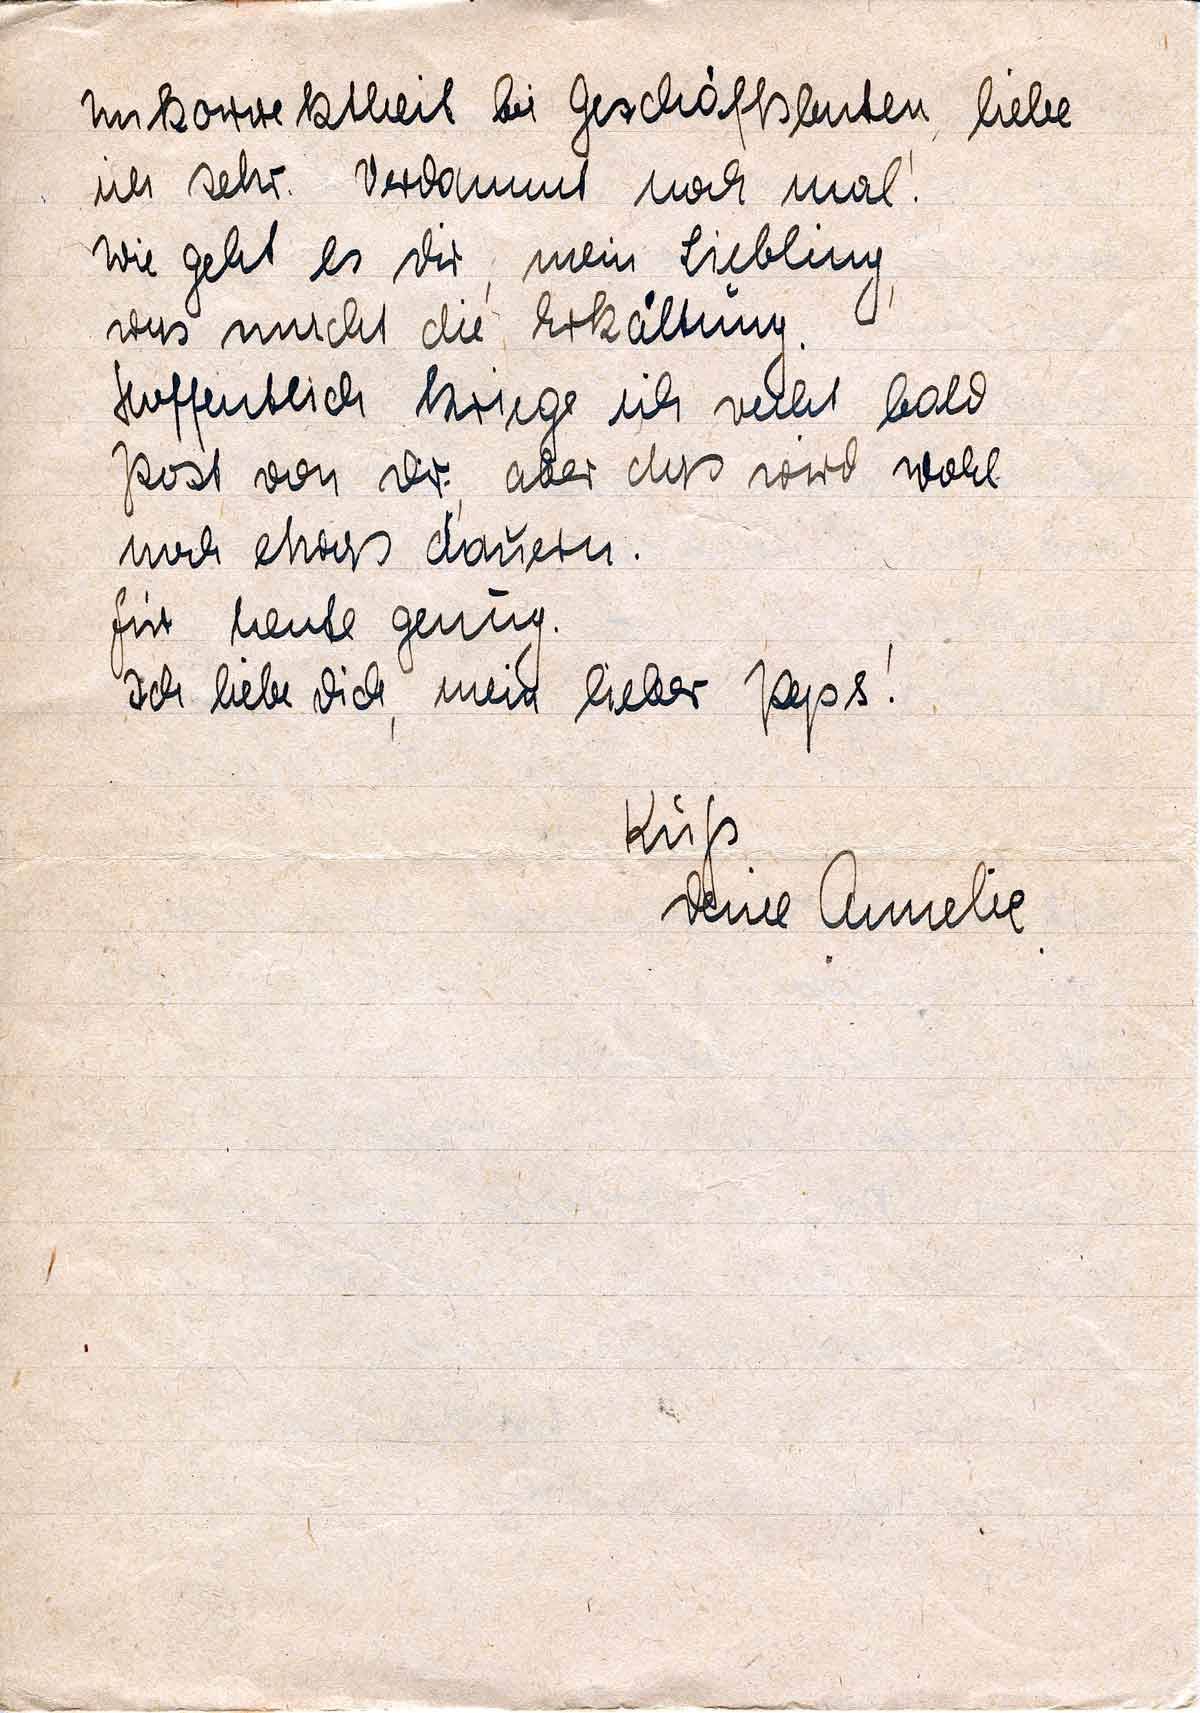 Unkorrektheit bei Geschäftsleuten, liebe
ich sehr. Verdammt noch mal!
Wie geht es Dir, mein Liebling,
was macht die Erkältung.
Hoffentlich kriege ich recht bald
Post von Dir, aber das wird wohl
noch etwas dauern.
für heute genug.
Ich liebe Dich, mein lieber Peps!
Kuß
Deine Annelie